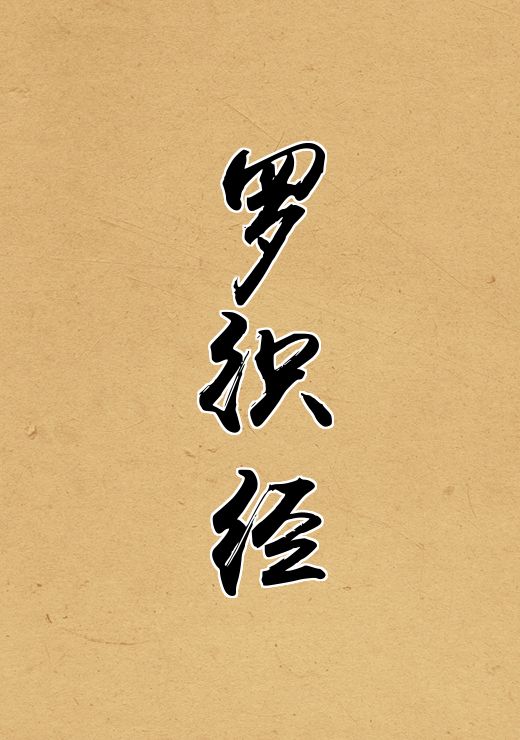 罗织经